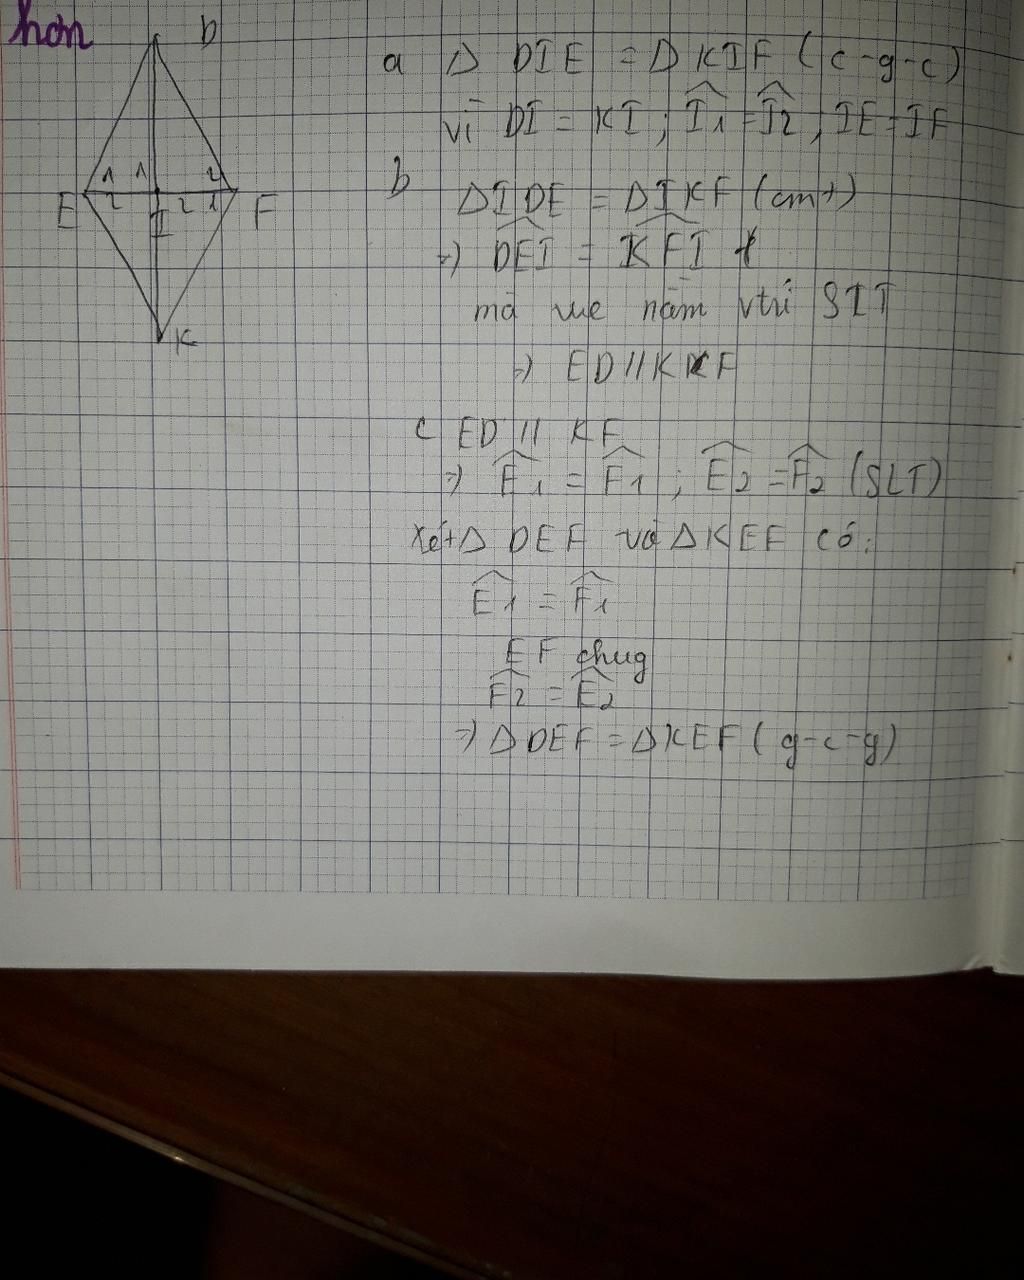 hơn
D
1 1 2
E 2 I 2 1 F
K
a Δ DIE = Δ KIF (c-g-c)
vì DI = KI ; Î1 = Î2 ; IE = IF
b ΔIDE = ΔIKF (cmt)
=> DEI = KFI
mà nằm vtrí SLT
=> ED // KF
c ED // KF
=> Ê1 = F̂1 ; Ê2 = F̂2 (SLT)
Xét Δ DEF và Δ KEF có:
Ê1 = F̂1
EF chug
F̂2 = Ê2
=> Δ DEF = Δ KEF ( g-c-g)